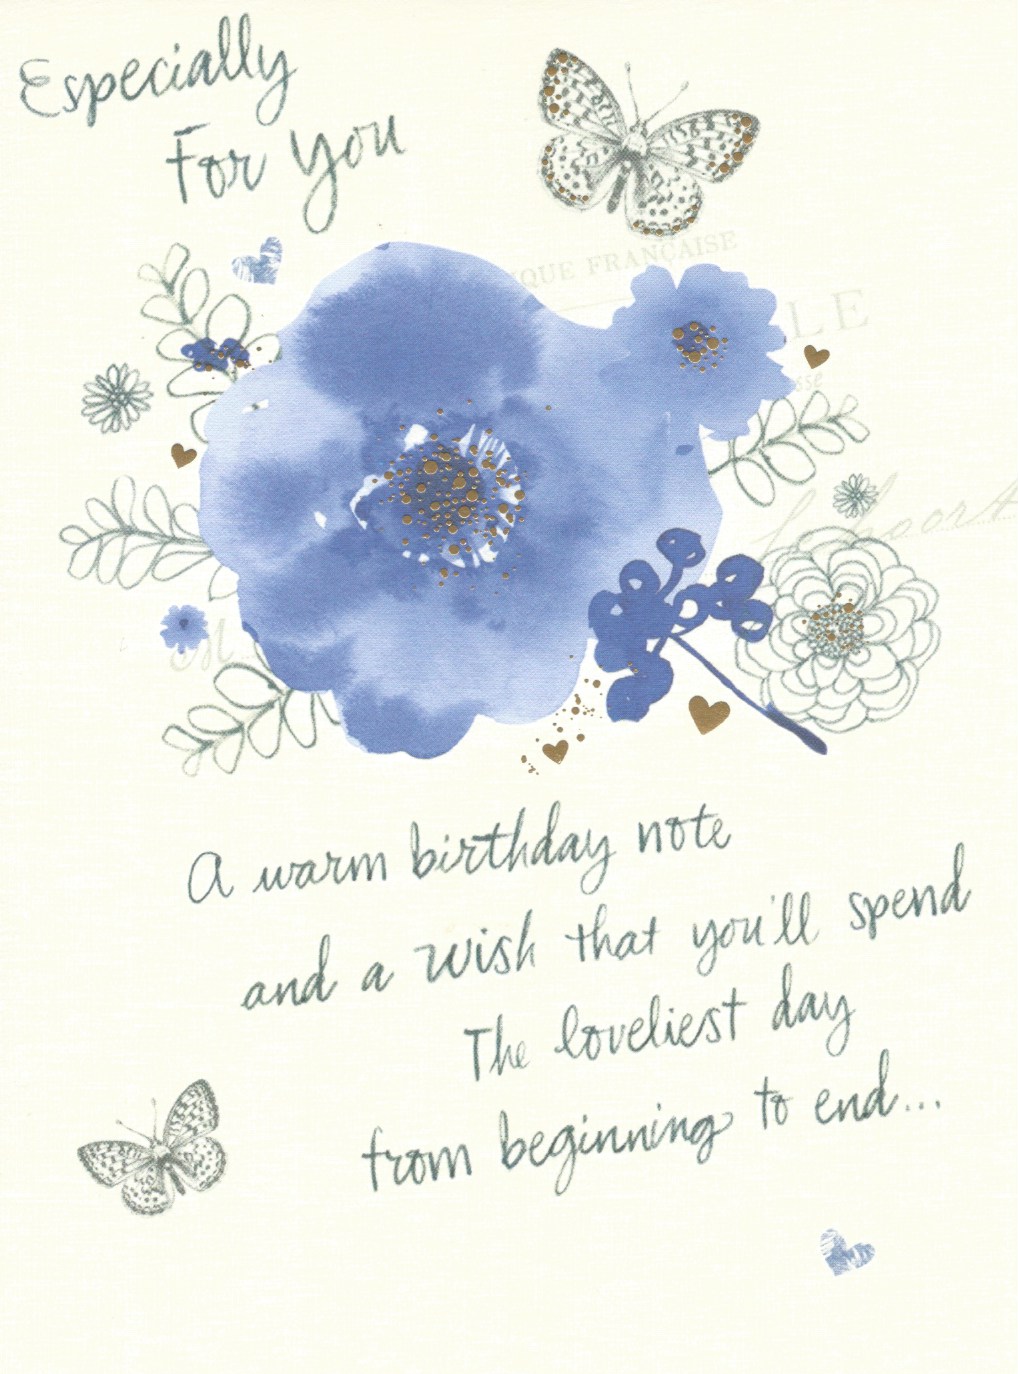 Especially
For You
FRANÇAISE
LE
A warm birthday note
and a wish that you'll spend
The loveliest day
from beginning to end...